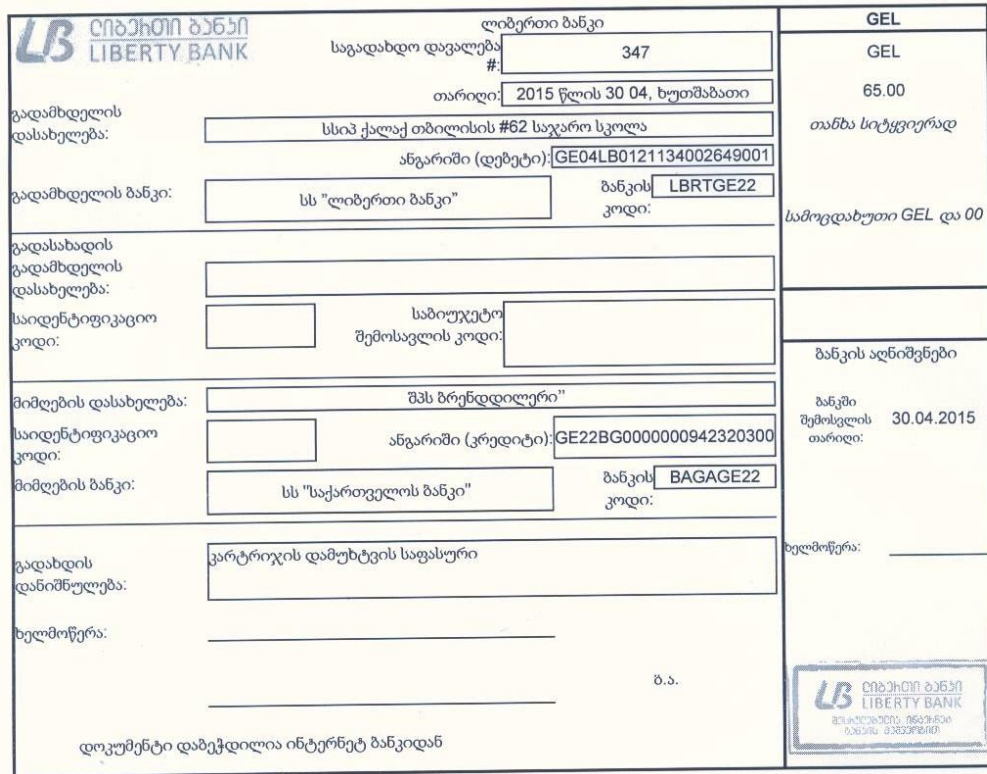 ლიბერთი ბანკი
LIBERTY BANK
ლიბერთი ბანკი
საგადახდო დავალება #: 347
თარიღი: 2015 წლის 30 04, ხუთშაბათი
გადამხდელის დასახელება: სსიპ ქალაქ თბილისის #62 საჯარო სკოლა
ანგარიში (დებეტი): GE04LB0121134002649001
გადამხდელის ბანკი: სს "ლიბერთი ბანკი"
ბანკის კოდი: LBRTGE22
გადასახადის გადამხდელის დასახელება:
საიდენტიფიკაციო კოდი:
საბიუჯეტო შემოსავლის კოდი:
მიმღების დასახელება: შპს ბრენდდილერი"
საიდენტიფიკაციო კოდი:
ანგარიში (კრედიტი): GE22BG0000000942320300
მიმღების ბანკი: სს "საქართველოს ბანკი"
ბანკის კოდი: BAGAGE22
გადახდის დანიშნულება: კარტრიჯის დამუხტვის საფასური
ხელმოწერა:
ბ.ა.
დოკუმენტი დაბეჭდილია ინტერნეტ ბანკიდან
GEL
GEL
65.00
თანხა სიტყვიერად
სამოცდახუთი GEL და 00
ბანკის აღნიშვნები
ბანკში შემოსვლის თარიღი: 30.04.2015
ხელმოწერა:
ლიბერთი ბანკი
LIBERTY BANK
შესრულებულია ინტერნეტ
ბანკის მეშვეობით